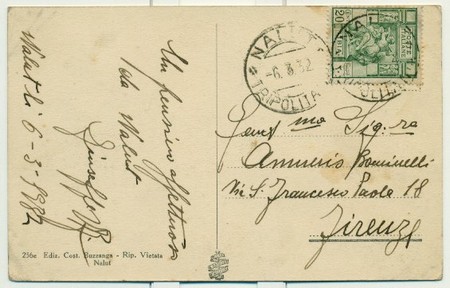 Nalut li 6-3-932
Un pensiero affettuoso
da Nalut
Giuseppe
256e Ediz. Cost. Buzzanga - Rip. Vietata
Nalut
NALUT
-6.3.32
TRIPOLITA
POSTE
ITALIANE
20
Gent ma Sig.ra
Bominelli
Via S. Francesco Paola 18
Firenze